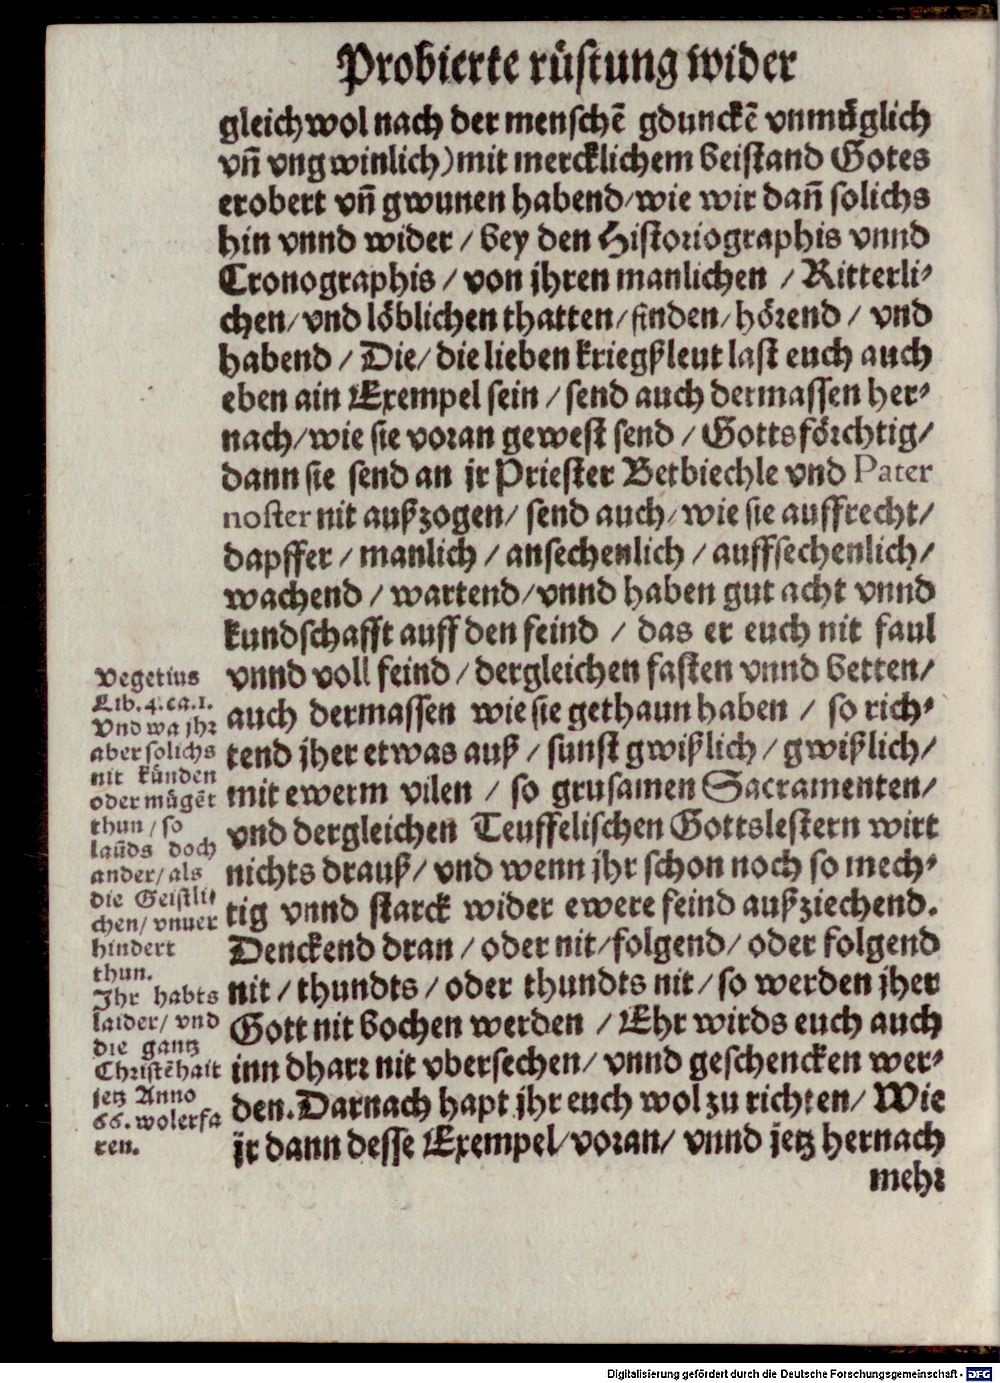 Probierte rüstung wider
gleichwol nach der menschē gdunckē vnmüglich
vñ vngwinlich) mit mercklichem beistand Gotes
erobert vñ gwunen habend/ wie wir dañ solichs
hin vnnd wider / bey den Historiographis vnnd
Cronographis / von jhren manlichen / Ritterli⸗
chen/ vnd löblichen thatten/ finden/ hörend / vnd
habend / Die/ die lieben kriegßleut last euch auch
eben ain Exempel sein / send auch dermassen her⸗
nach/ wie sie voran gewest send / Gottsförchtig/
dann sie send an jr Priester Betbiechle vnd Pater
noster nit außzogen/ send auch/ wie sie auffrecht/
dapffer / manlich / ansechenlich / auffsechenlich/
wachend / wartend/ vnnd haben gut acht vnnd
kundschafft auff den feind / das er euch nit faul
vnnd voll feind / dergleichen fasten vnnd betten/
auch dermassen wie sie gethaun haben / so rich⸗
tend jher etwas auß / sunst gwißlich / gwißlich/
mit ewerm vilen / so grusamen Sacramenten/
vnd dergleichen Teuffelischen Gottslestern wirt
nichts drauß/ vnd wenn jhr schon noch so mech⸗
tig vnnd starck wider ewere feind außziechend.
Denckend dran / oder nit/ folgend/ oder folgend
nit / thundts / oder thundts nit / so werden jher
Gott nit bochen werden / Ehr wirds euch auch
inn dharr nit vbersechen/ vnnd geschencken wer⸗
den. Darnach hapt jhr euch wol zu richten/ Wie
jr dann desse Exempel/ voran/ vnnd jetz hernach
mehr
Vegetius
Lib. 4. ca. 1.
Vnd wa jhr
aber solichs
nit künden
oder mügēt
thun / so
lauds doch
ander/ als
die Geistli⸗
chen/ vnuer
hindert
thun.
Ihr habts
laider/ vnd
die gantz
Christēhait
jetz Anno
66. wol erfa
ren.
Digitalisierung gefördert durch die Deutsche Forschungsgemeinschaft - DFG